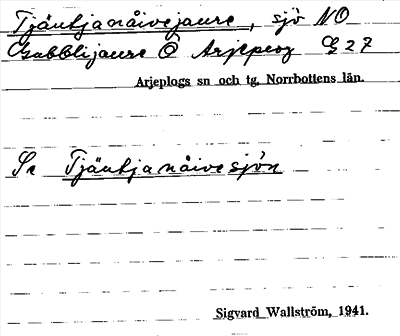 Tjäutjanåivejaure, sjö NO
Gabblijaure O Arjeplog G27
Arjeplogs sn och tg, Norrbottens län.
Se Tjäutjanåivesjön
Sigvard Wallström, 1941.